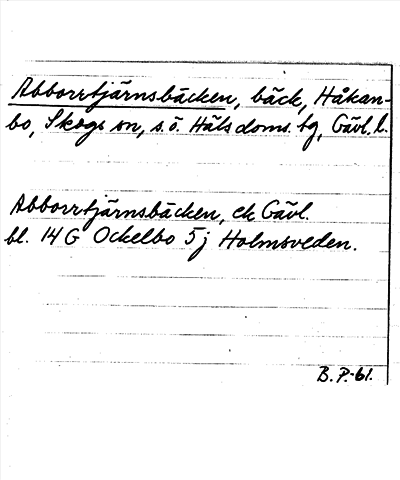 Abborrtjärnsbäcken, bäck, Håkan-
bo, Skogs sn, s.ö. Häls doms. tg, Gävl. l.
Abborrtjärnsbäcken, ek Gävl.
bl. 14 G Ockelbo 5j Holmsveden.
B. P.-61.